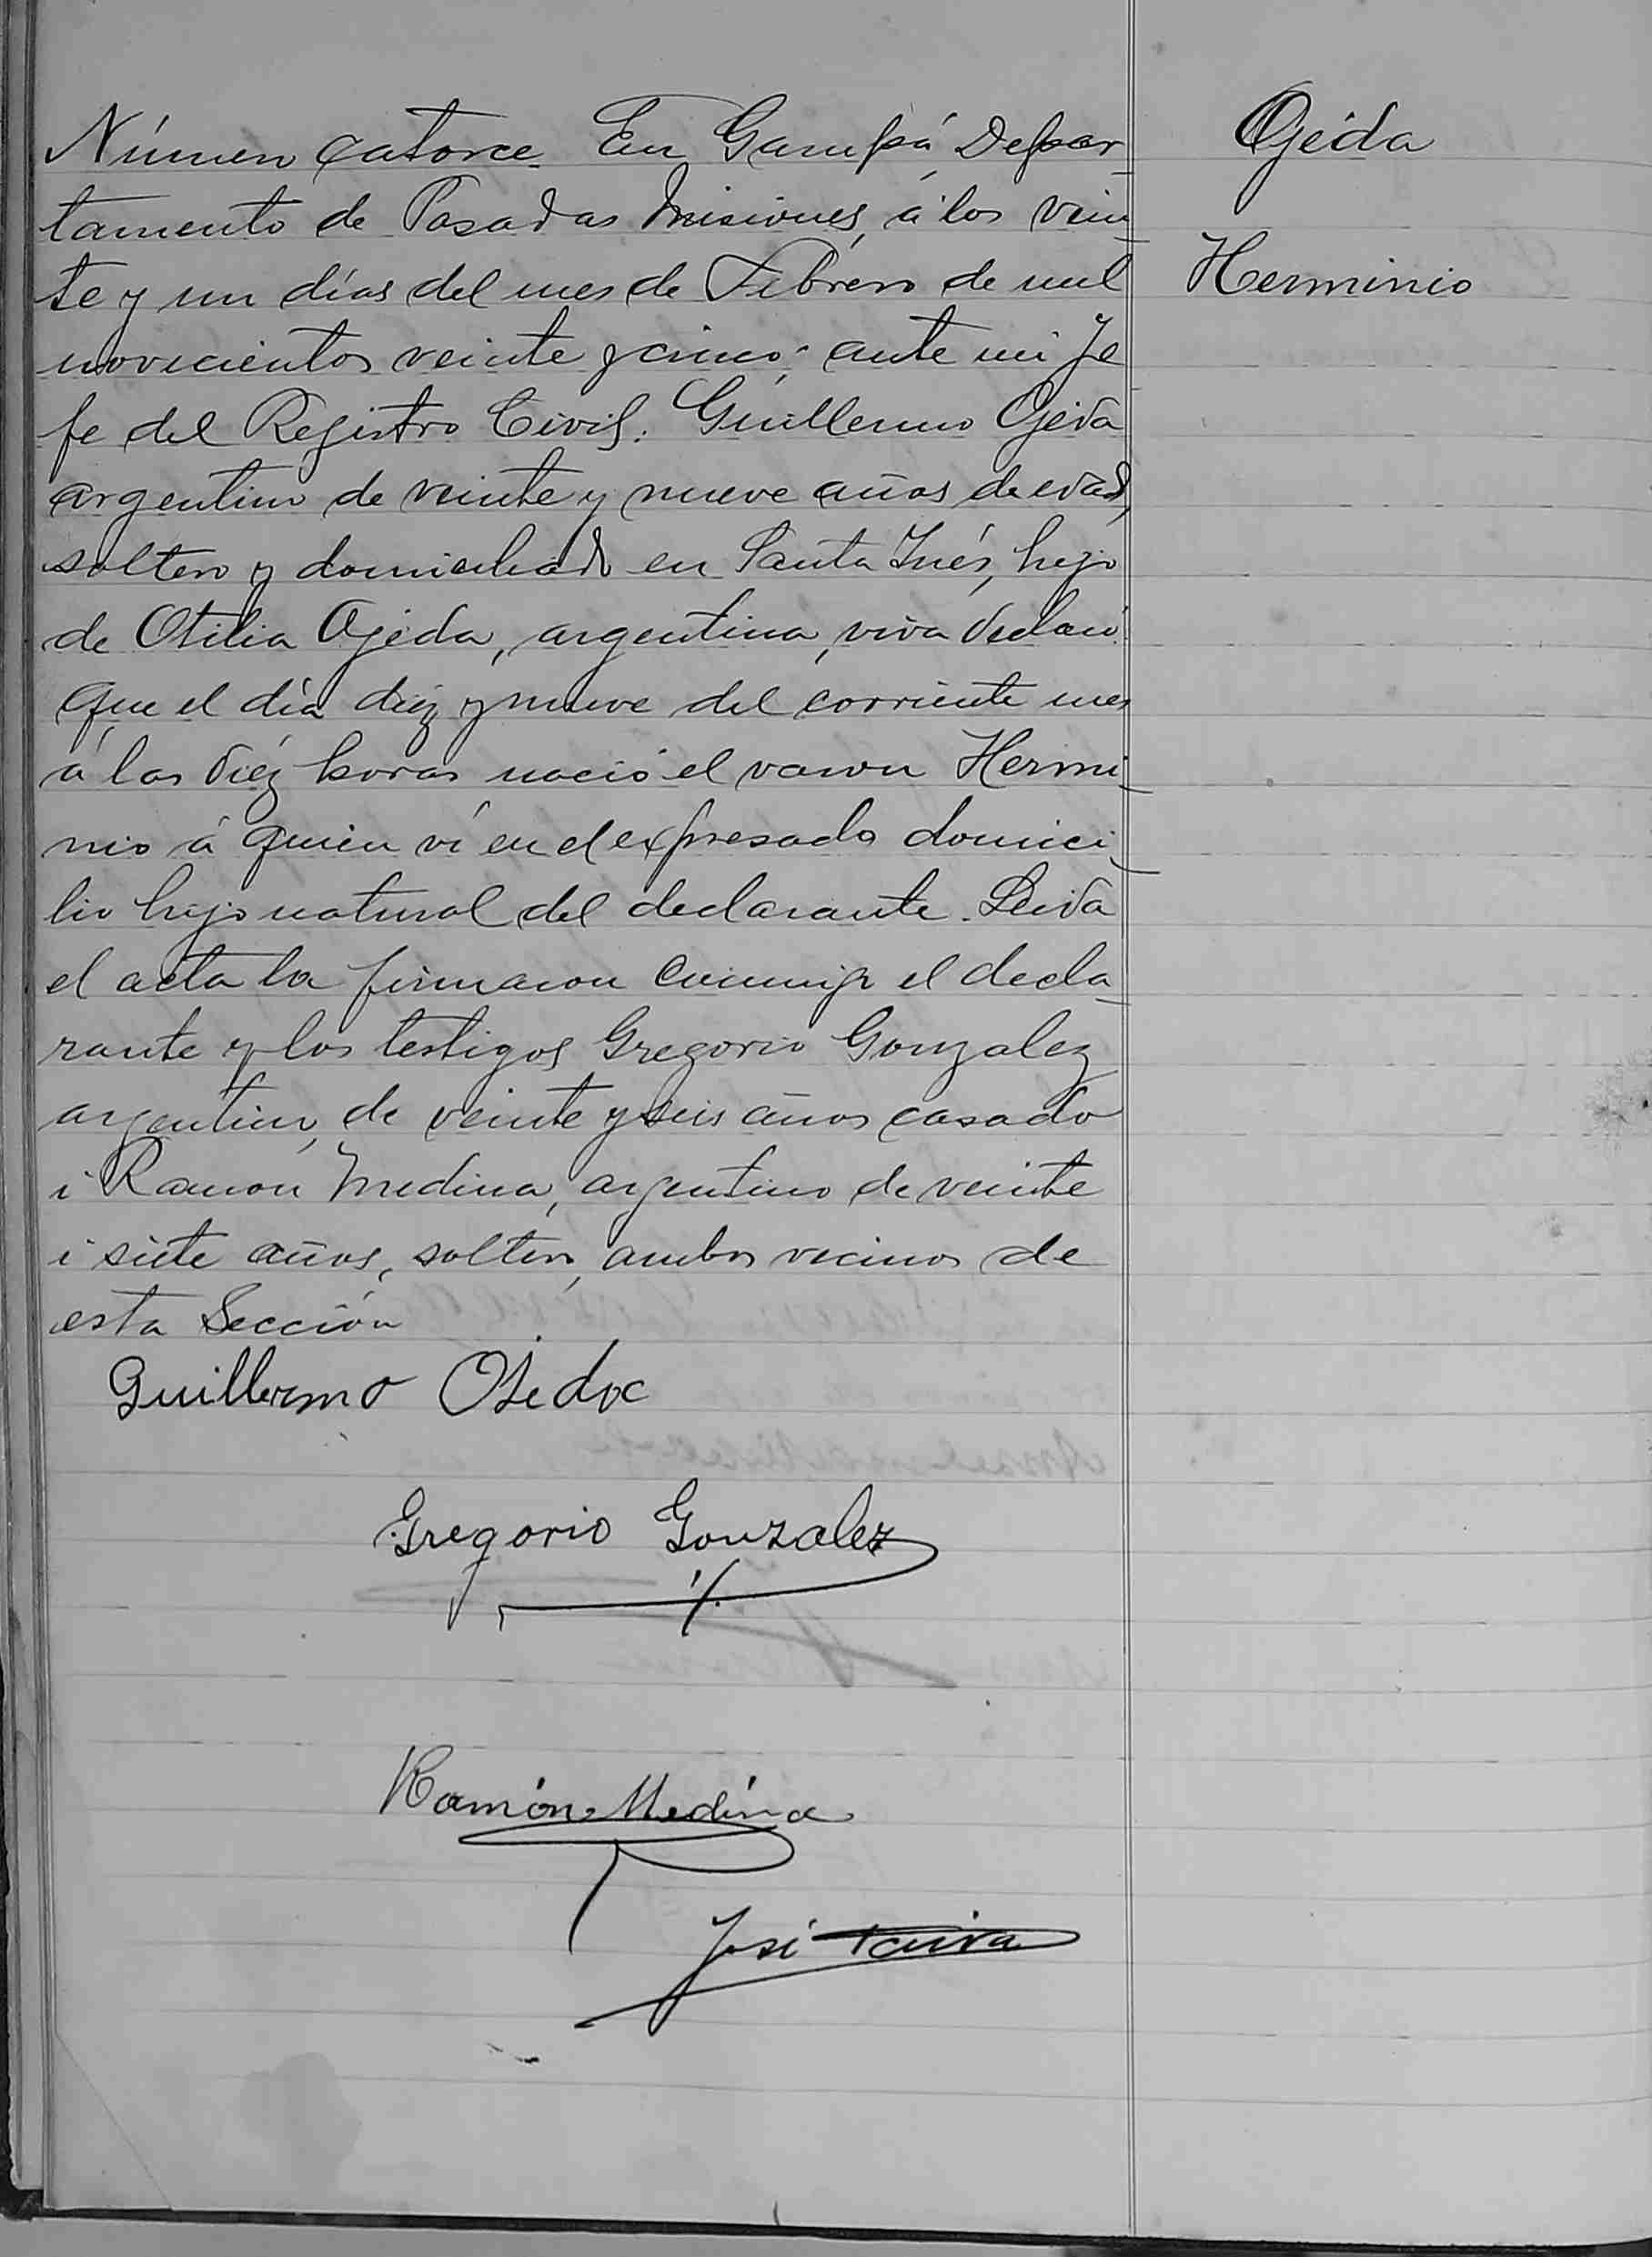 Número catorce. En Garupá, Depar-
tamento de Posadas Misiones, á los vein-
te y un días del mes de Febrero de mil
novecientos veinte y cinco; ante mi Je
fe del Registro Civil: Guillermo Ojeda
argentino de veinte y nueve años de edad,
soltero y domiciliado en Santa Inés, hijo
de Otilia Ojeda, argentina, viva declaró:
Que el día diez y nueve del corriente mes
á las diéz horas nació el varon Hermi-
nio á quien ví en el expresado domici-
lio hijo natural del declarante. Leida
el acta la firmaron conmigo el decla-
rante y los testigos Gregorio Gonzalez
argentino, de veinte y seis años casado
i Ramon Medina, argentino de veinte
i siete años, soltero, ambos vecinos de
esta Sección
Guillermo Ojeda
Gregorio Gonzalez
Ramón Medina
José
Ojeda
Herminio